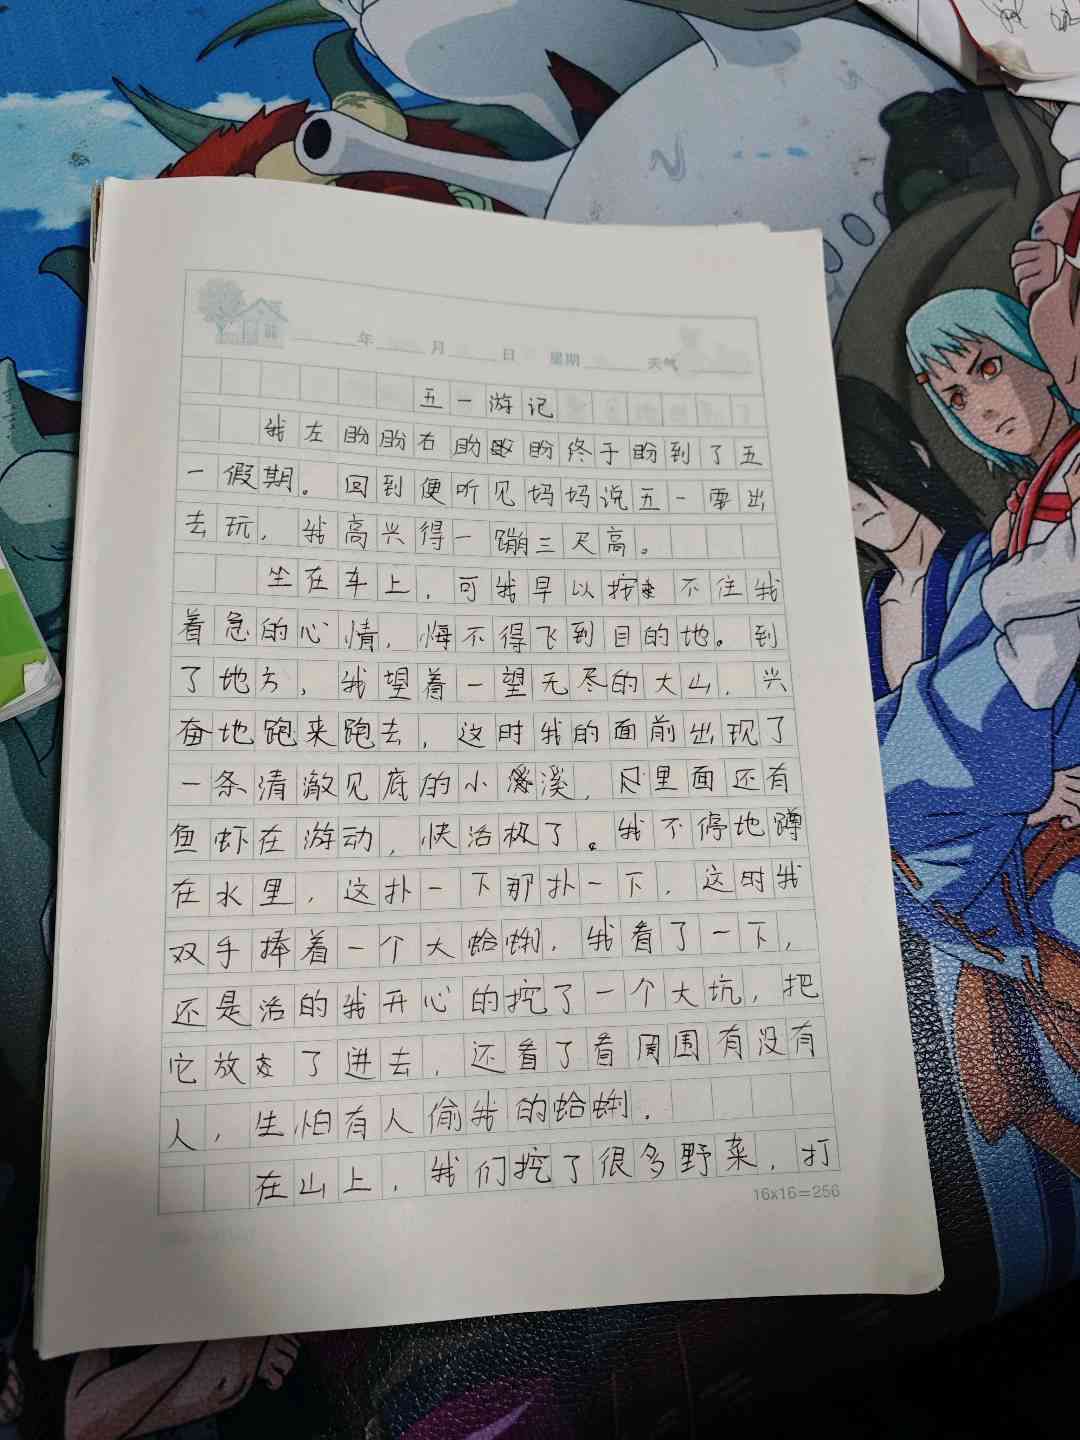 年 月 日 星期 天气
五一游记
我左盼盼右盼盼终于盼到了五
一假期。回到便听见妈妈说五一要出
去玩，我高兴得一蹦三尺高。
坐在车上，可我早以按不住我
着急的心情，悔不得飞到目的地。到
了地方，我望着一望无尽的大山，兴
奋地跑来跑去，这时我的面前出现了
一条清澈见底的小溪，里面还有
鱼虾在游动，快活极了。我不停地蹲
在水里，这扑一下那扑一下，这时我
双手捧着一个大蛤蜊，我看了一下，
还是活的我开心的挖了一个大坑，把
它放了进去，还看了看周围有没有
人，生怕有人偷我的蛤蜊.
在山上，我们挖了很多野菜，打
16x16=256